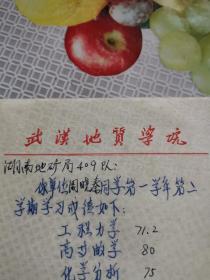 武汉地質学院
湖南地矿局409队:
你单位周晓春同学第一学年第二
学期学习成绩如下:
工程力学 71.2
高等数学 80
化学分析 75